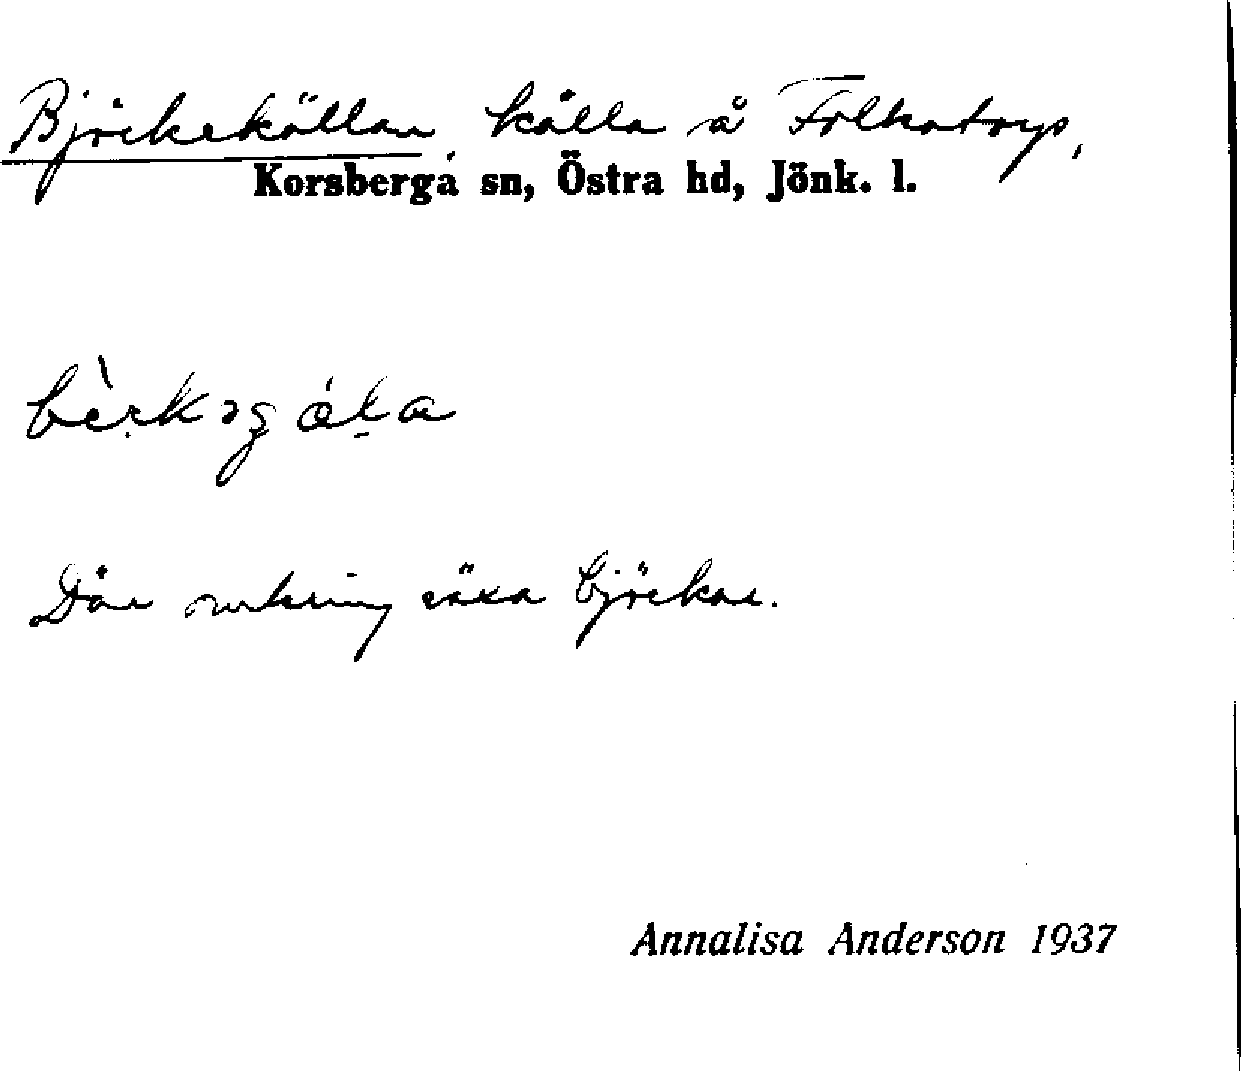 Björkekällan, källa å Folkatorp,
Korsberga sn, Östra hd, Jönk. l.
Där omkring växa björkar.
Annalisa Anderson 1937